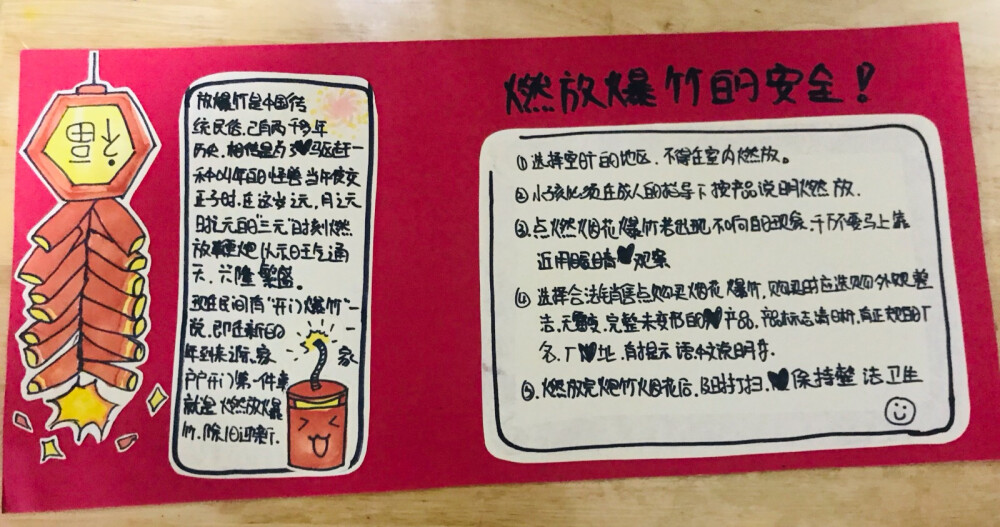 福
放爆竹是中国传
统民俗,已有两千多年
历史,相传是为了♥驱赶一
种叫年的怪兽.当午夜交
正子时,在这岁元,月元
时元的"三元"时刻燃
放鞭炮以示旺气通
天、兴隆繁盛。
现在民间有"开门爆竹"一
说,即在新的
年到来之际,家家
户户开门第一件事
就是燃放爆
竹,除旧迎新.
燃放爆竹的安全!
①选择空旷的地区.不得在室内燃放。
②小孩必须在成人的指导下按产品说明燃放.
③点燃烟花爆竹若出现不响的现象,千万不要马上靠
近用眼睛♥观察
④选择合法销售点购买烟花爆竹,购买时应选购外观整
洁,无霉变,完整未变形的♥产品,产品标志清晰,有正规的厂
名,厂♥址,有提示语中文说明等.
⑤.燃放完爆竹烟花后,及时打扫.♥保持整洁卫生